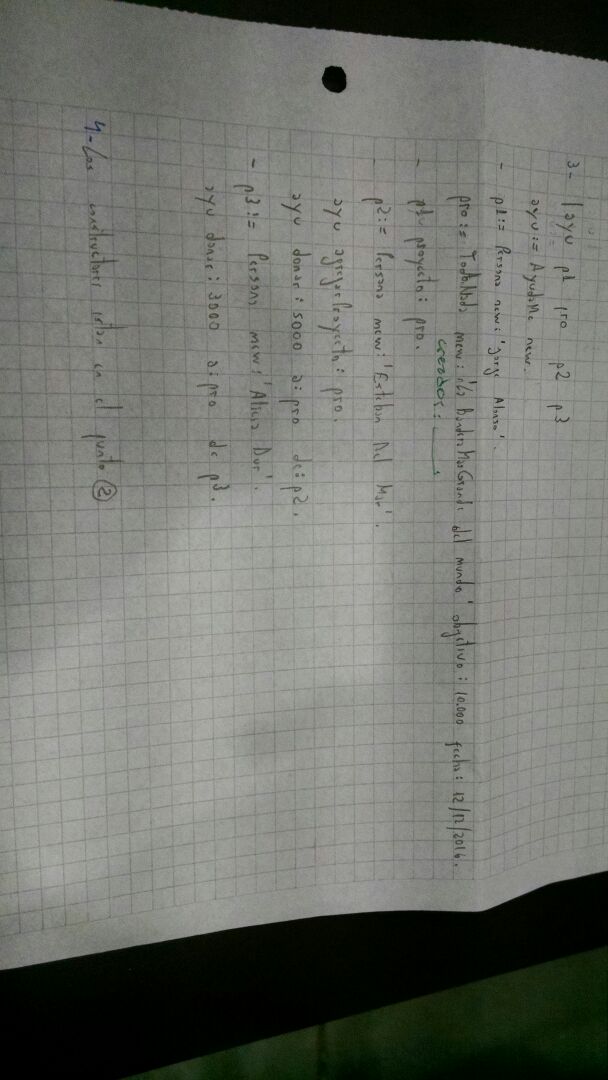 3- | ayu p1 pro p2 p3
ayu := AyudaMe new.
- p1:= Persona new: 'Jorge Alonso'.
pro := TodoNada new: 'La BanderaMasGrande del mundo' objetivo: 10.000 fecha: 12/12/2016.
creador: ____.
- p1 proyecto: pro.
- p2:= Persona new: 'Esteban Del Mar'.
ayu agregarProyecto: pro.
ayu donar: 5000 a: pro de: p2.
- p3:= Persona new: 'Alicia Dur'.
ayu donar: 3000 a: pro de p3.
4- Los constructores estan en el punto ②